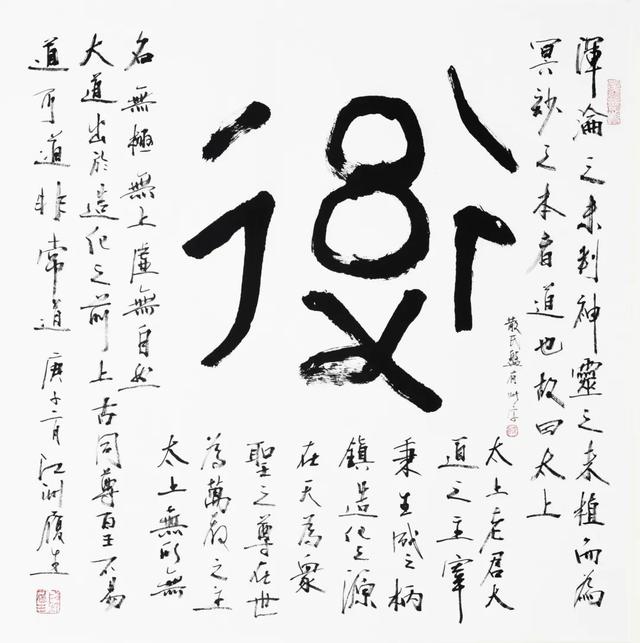 渾淪之未判神靈之未植而為
冥妙之本者道也故曰太上
散氏盤有此字
太上老君大
道之主宰
秉生成之柄
鎮造化之源
在天為衆
聖之尊在世
為萬教之主
太上無形無
名無極無上虛無自然
大道出於造化之前上古同尊百王不易
道可道非常道 庚子二月江洲履生